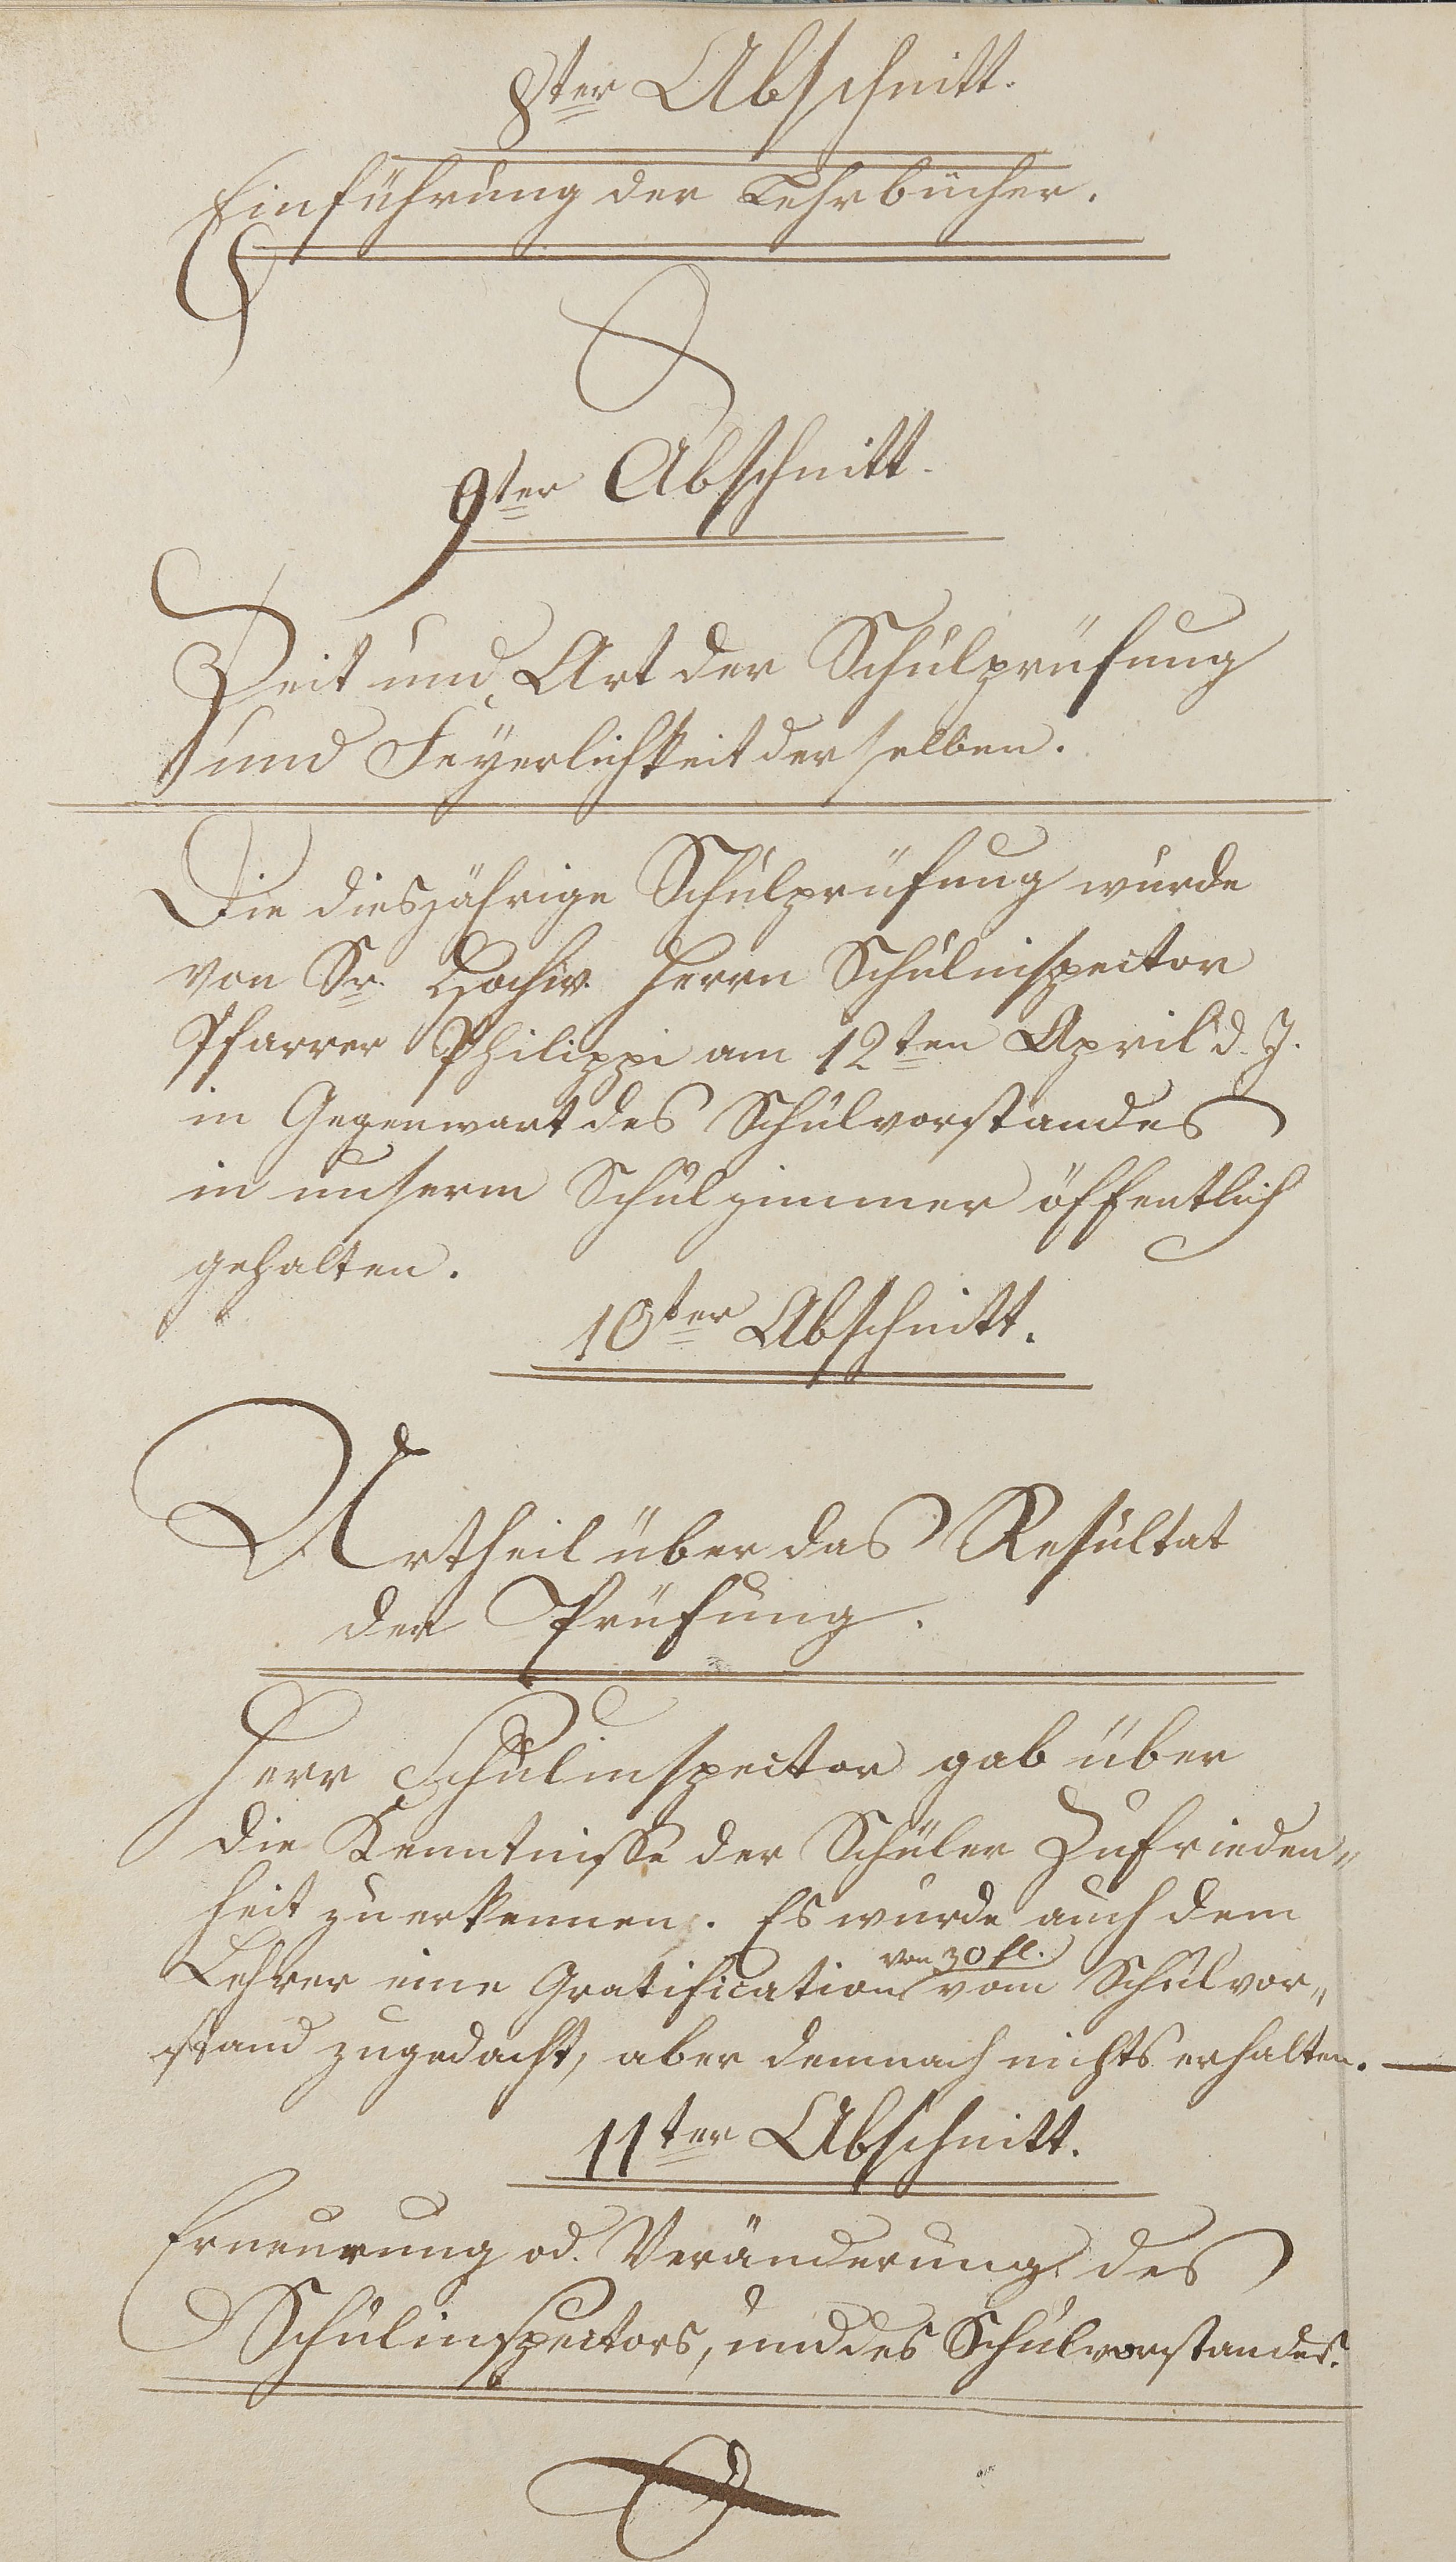 8ter Abschnitt.
Einführung der Lehrbücher.
9ter Abschnitt.
Zeit und Art der Schulprüfung
und Feyerlichkeit derselben.
Die diesjährige Schulprüfung wurde
von Sr. Hochw. Herrn Schulinspector
Pfarrer Philippi am 12ten April d. J.
in Gegenwart des Schulvorstandes
in unserm Schulzimmer öffentlich
gehalten.
10ter Abschnitt.
Urtheil über das Resultat
der Prüfung.
Herr Schulinspector gab über
die Kenntnisse der Schüler Zufrieden„
heit zu erkennen. Es wurde auch dem
von 30 fl.
Lehrer eine Gratification vom Schulvor„
stand zugedacht, aber demnach nichts erhalten. —
11ter Abschnitt.
Erneuerung od. Veränderung des
Schulinspectors, und des Schulvorstandes.